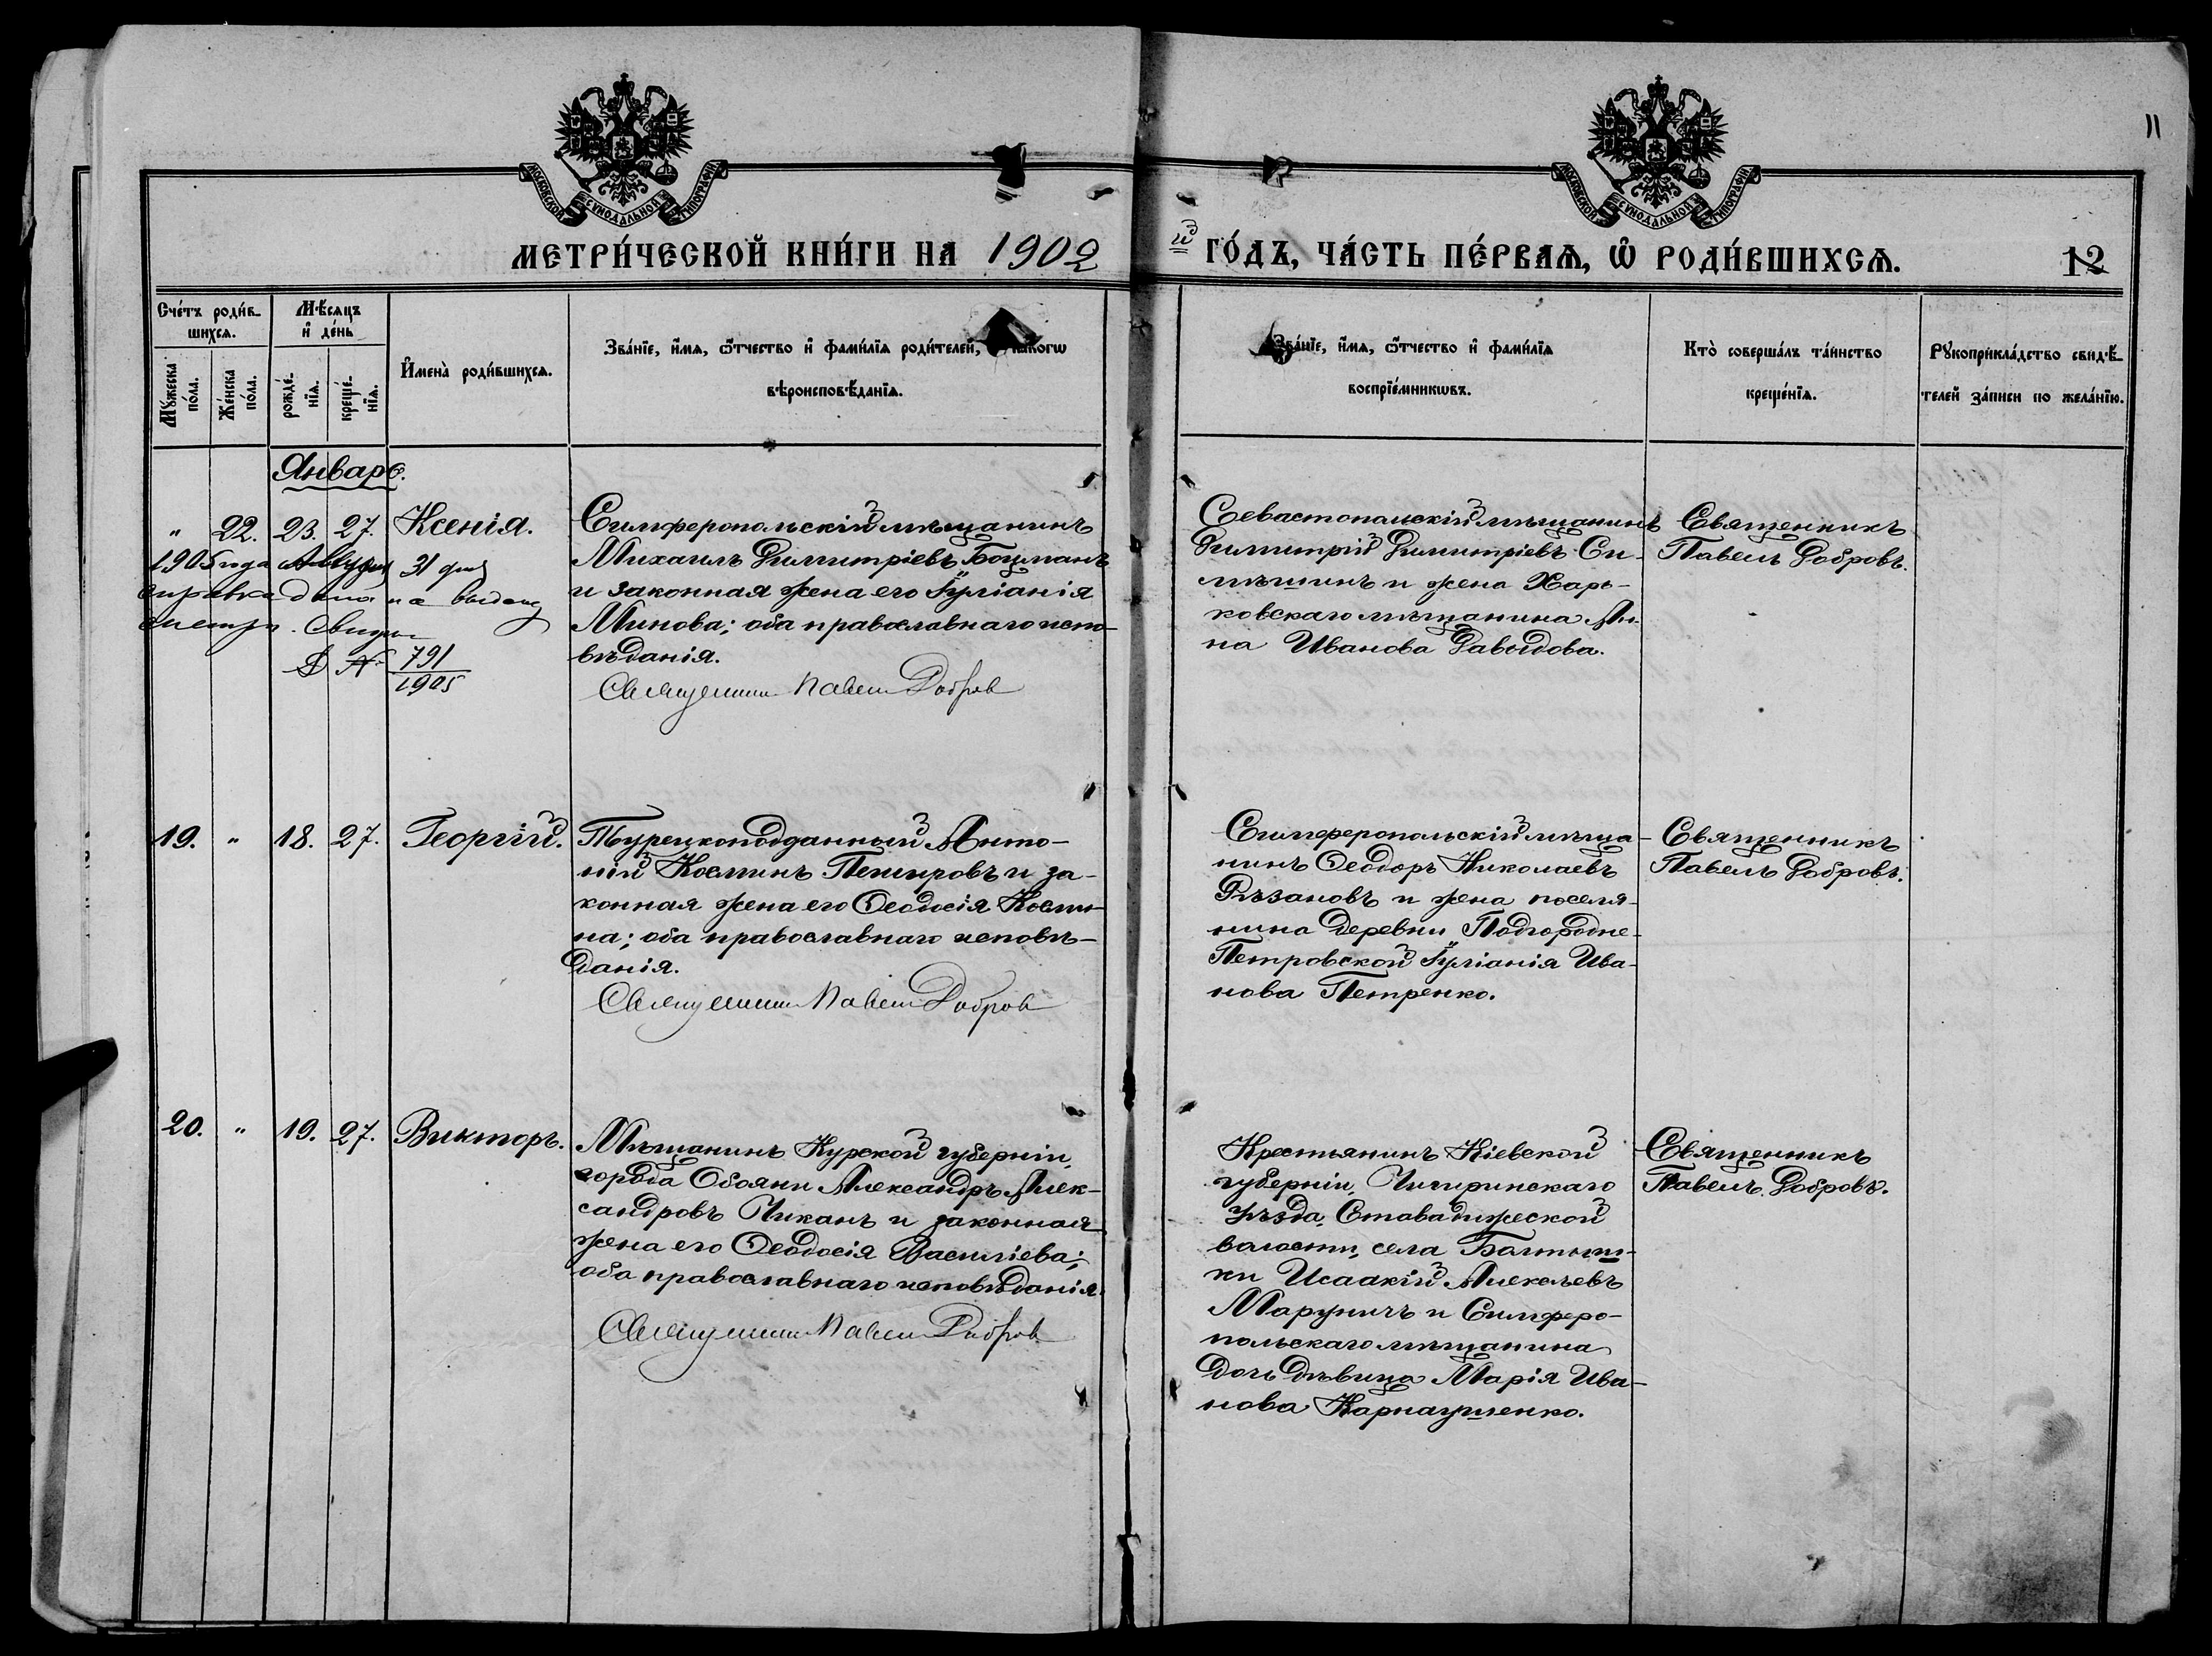 11
МОСКОВСКОЙ СѴНОДАЛЬНОЙ ТИПОГРАФІИ
МОСКОВСКОЙ СѴНОДАЛЬНОЙ ТИПОГРАФІИ
МЕТРИ́ЧЕСКОЙ КНИ́ГИ НА 1902 й ГО́ДЪ, ЧА́СТЬ ПЕ́РВАѦ, Ѽ РОДИ́ВШИХСѦ. 12
Сче́тъ роди́в-
шихсѧ.
Мꙋ́жеска по́ла.
Же́нска по́ла.
Мѣ́сѧцъ и҆ де́нь
рожде́-
нїѧ.
креще́-
нїѧ.
И҆мена̀ роди́вшихсѧ.
Зва́нїе, и҆́мѧ, ѻ҆́тчество и҆ фами́лїѧ роди́телей, какогѡ
вѣроисповѣ́данїѧ.
Зва́нїе, и҆́мѧ, ѻ҆́тчество и҆ фами́лїѧ
воспрїе́мникѡвъ.
Кто̀ соверша́лъ та́инство
креще́нїѧ.
Рꙋкоприкла́дство свидѣ́-
телей за́писи по жела́нїю.
Январь.
„ 22. 23. 27. Ксенія.
1905 года Августа 31 дня
справка дана на выдачу
метри. Свид.
№ 791
1905
Симферопольскій мѣщанинъ
Михаилъ Димитріевъ Боцманъ
и законная жена его Іуліанія
Минова; оба православнаго испо-
вѣданія.
Священникъ Павелъ Добровъ
Севастопольскій мѣщанинъ
Димитрій Димитріевъ Си-
мъшинъ и жена Харь-
ковскаго мѣщанина Ан-
на Иванова Давыдова.
Священникъ
Павелъ Добровъ.
19. „ 18. 27. Георгій.
Турецкоподданный Анто-
ній Косминъ Петировъ и за-
конная жена его Ѳеодосія Косми-
на; оба православнаго исповѣ-
данія.
Священникъ Павелъ Добровъ
Симферопольскій мѣща-
нинъ Ѳеодоръ Николаевъ
Рѣзановъ и жена поселя-
нина деревни Подгородне-
Петровской Іуліанія Ива-
нова Петренко.
Священникъ
Павелъ Добровъ.
20. „ 19. 27. Викторъ.
Мѣщанинъ Курской губерніи,
города Обояни Александръ Алек-
сандровъ Чиканъ и законная
жена его Ѳеодосія Василіева;
оба православнаго исповѣданія.
Священникъ Павелъ Добровъ
Крестьянинъ Кіевской
губерніи, Чигиринскаго
уѣзда, Ставидлжеской
волости, села Балтыш-
ки Исаакій Алексѣевъ
Маруничъ и Симферо-
польскаго мѣщанина
дочь дѣвица Марія Ива-
нова Карнаушенко.
Священникъ
Павелъ Добровъ.